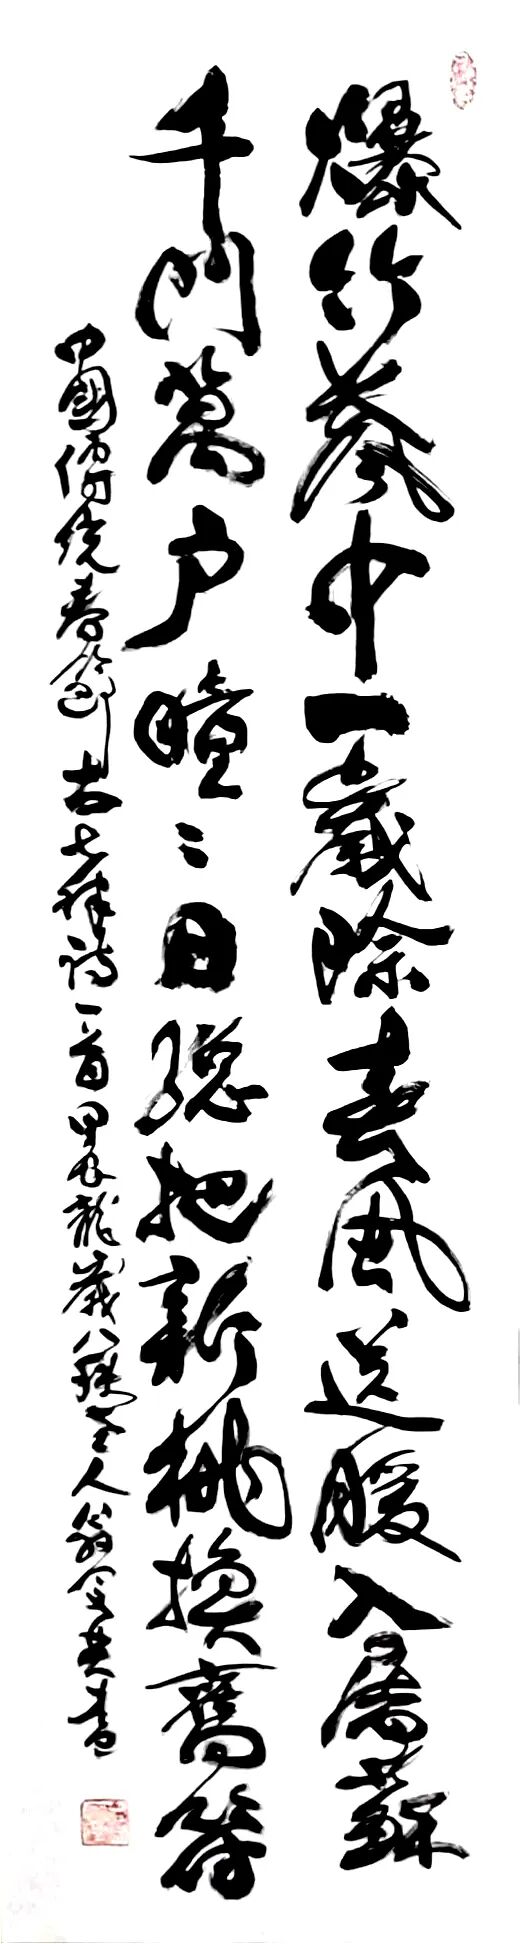 爆竹聲中一歲除春風送暖入屠蘇
千門萬户曈〻日總把新桃換舊符
中國傳統春節古七律詩一首甲辰龍歲八秩老人翁書